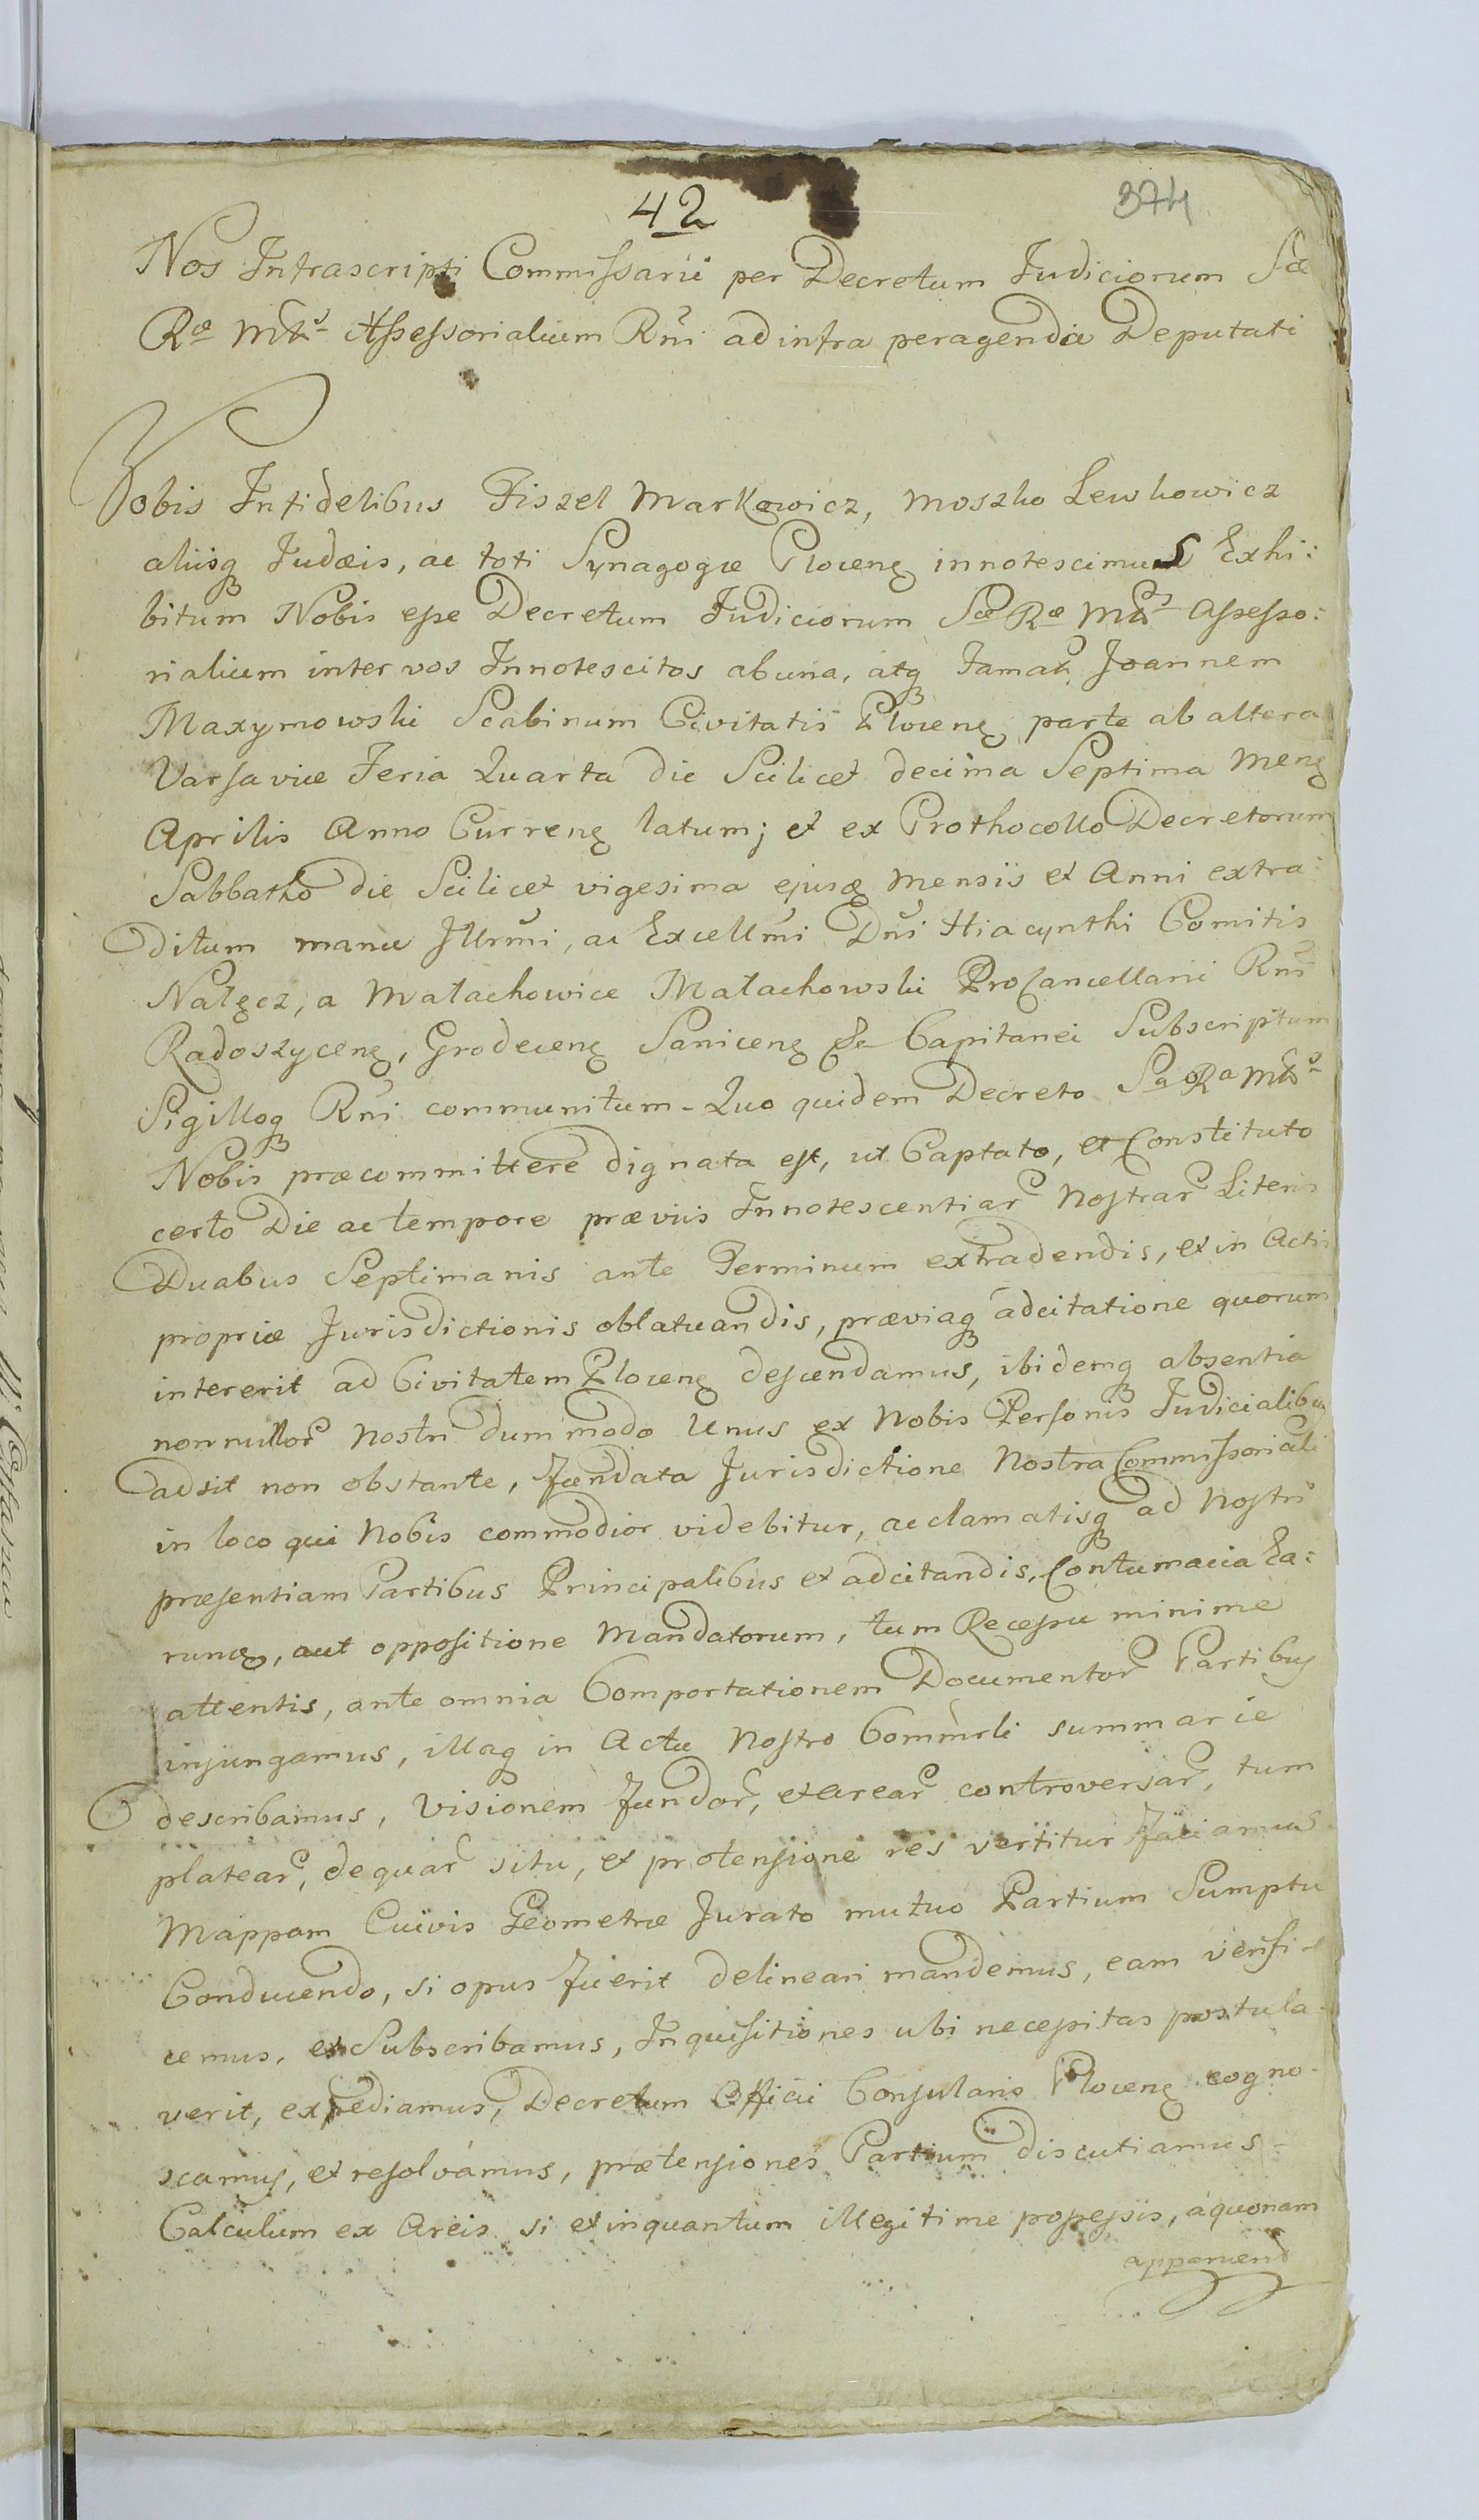 42
374
Nos Infrascripti Commissarii per Decretum Judiciorum Sæ
Ræ Mtis Assessorialium Rñi ad infra peragenda Deputati
Vobis Infidelibus Fiszel Markowicz, Moszko Lewkowicz
aliisq Judæis, ac toti Synagogæ Plocenę innotescimus Exhi:
bitum Nobis esse Decretum Judiciorum Sæ Ræ Mtis Assesso:
rialium inter vos Innotescitos ab una, atq Famat Joannem
Maxymowski Scabinum Civitatis Plocenę parte ab altera
Varsaviæ Feria Quarta die Scilicet decima Septima Menę
Aprilis Anno Currenę latum; et ex Prothocollo Decretorum
Sabbatho die Scilicet vigesima ejusq Mensis et Anni extra:
ditum manu Illrmi, ac Excellmi Dñi Hiacynthi Comitis
Nałęcz, a Małachowice Małachowski ProCancellarii Rñi
Radoszycenę, Grodecenę Sanicenę &c Capitanei Subscriptum
Sigilloq Rñi communitum - Quo quidem Decreto Sa Ra Mtas
Nobis præcommittere dignata est, ut Captato, et Constituto
certo Die ac tempore præviis Innotescentiar Nostrar Literis
Duabus Septimanis ante Terminum extradendis, et in Actis
propriæ Jurisdictionis oblatuandis, præviaq adcitatione quorum
intererit ad Civitatem Plocenę descendamus, ibidemq absentia
nonnullor Nostri dummodo Unus ex Nobis Personis Judicialibus
adsit non obstante, fundata Jurisdictione Nostra Commissoriali
in loco qui Nobis commodior videbitur, acclamatisq ad Nostri
præsentiam Partibus Principalibus et adcitandis, Contumacia Ea:
rundę, aut oppositione Mandatorum, tum Recessu minime
attentis, ante omnia Comportationem Documentor Partibus
injungamus, illaq in Actu Nostro Commrli summarie
describamus, Visionem fundor, et arear controversar, tum
platear, de quar situ, et protensione res vertitur faciamus
Mappam Cuivis Geometræ Jurato mutuo Partium Sumptu
Conducendo, si opus fuerit delineari mandemus, eam verifi-
cemus, et Subscribamus, Inquisitiones ubi necessitas postula-
verit, expediamus, Decretum Officii Consularis Plocenę cogno-
scamus, et resolvamus, prætensiones Partium discutiamus -
Calculum ex Areis si et inquantum illegitime possessis, a quonam